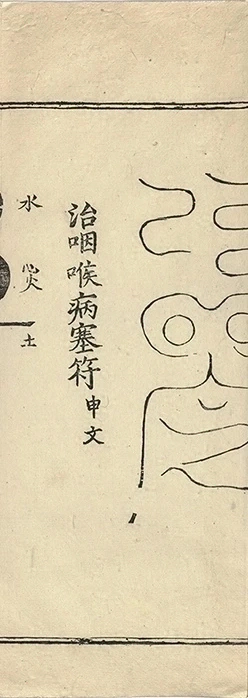 治咽喉病塞符申文
水
土